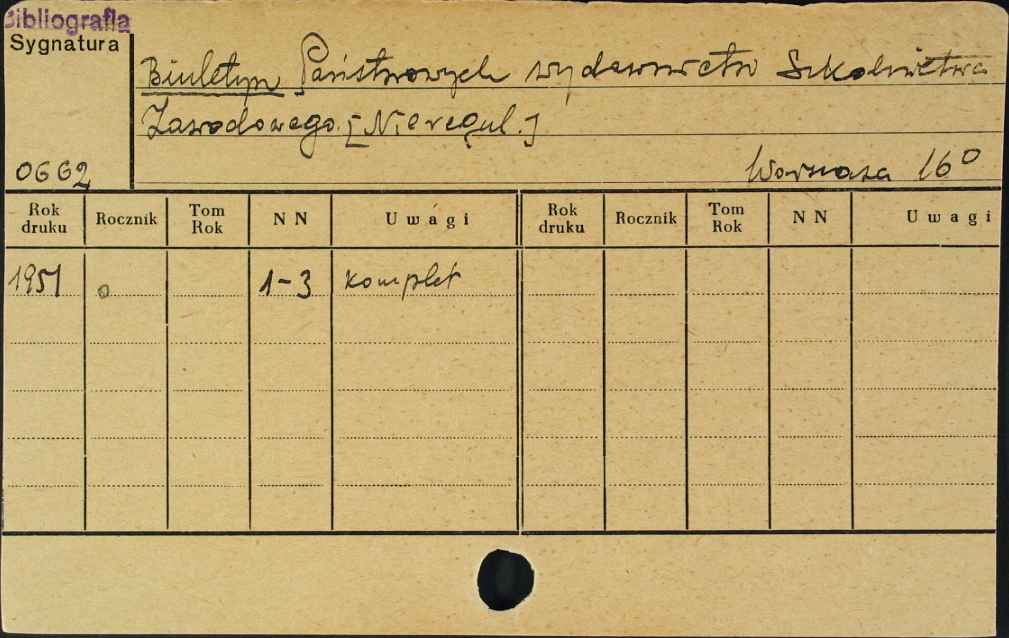 Bibliografia
Sygnatura
Biuletyn Państwowych wydawnictw Szkolnictwa
Zawodowego. [Nieregul.]
0662
Warszawa 16°
Rok druku Rocznik Tom Rok N N Uwagi Rok druku Rocznik Tom Rok N N Uwagi
1951 o 1-3 komplet